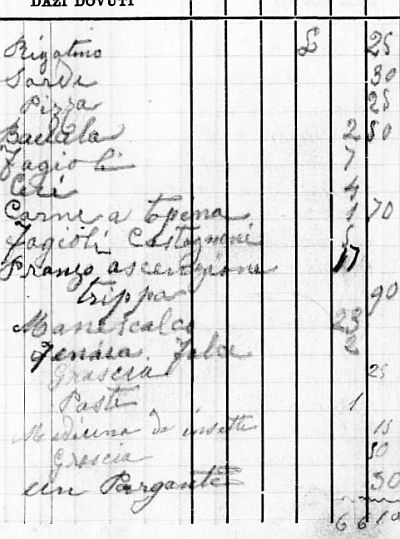 DAZI DOVUTI
Rigatino £ 25
Sarde 30
Pizza 25
Baccala 2 50
Fagioli 7
Ceci 4
Carne a Topena 1 70
Fagioli Castagnoni 5
Pranzo ascenzione 17
trippa 90
Maniscalco 23
2
Grascia 25
Paste 1
Medicina da insetti 15
Grascia 50
un Pargante 50
6 6 10